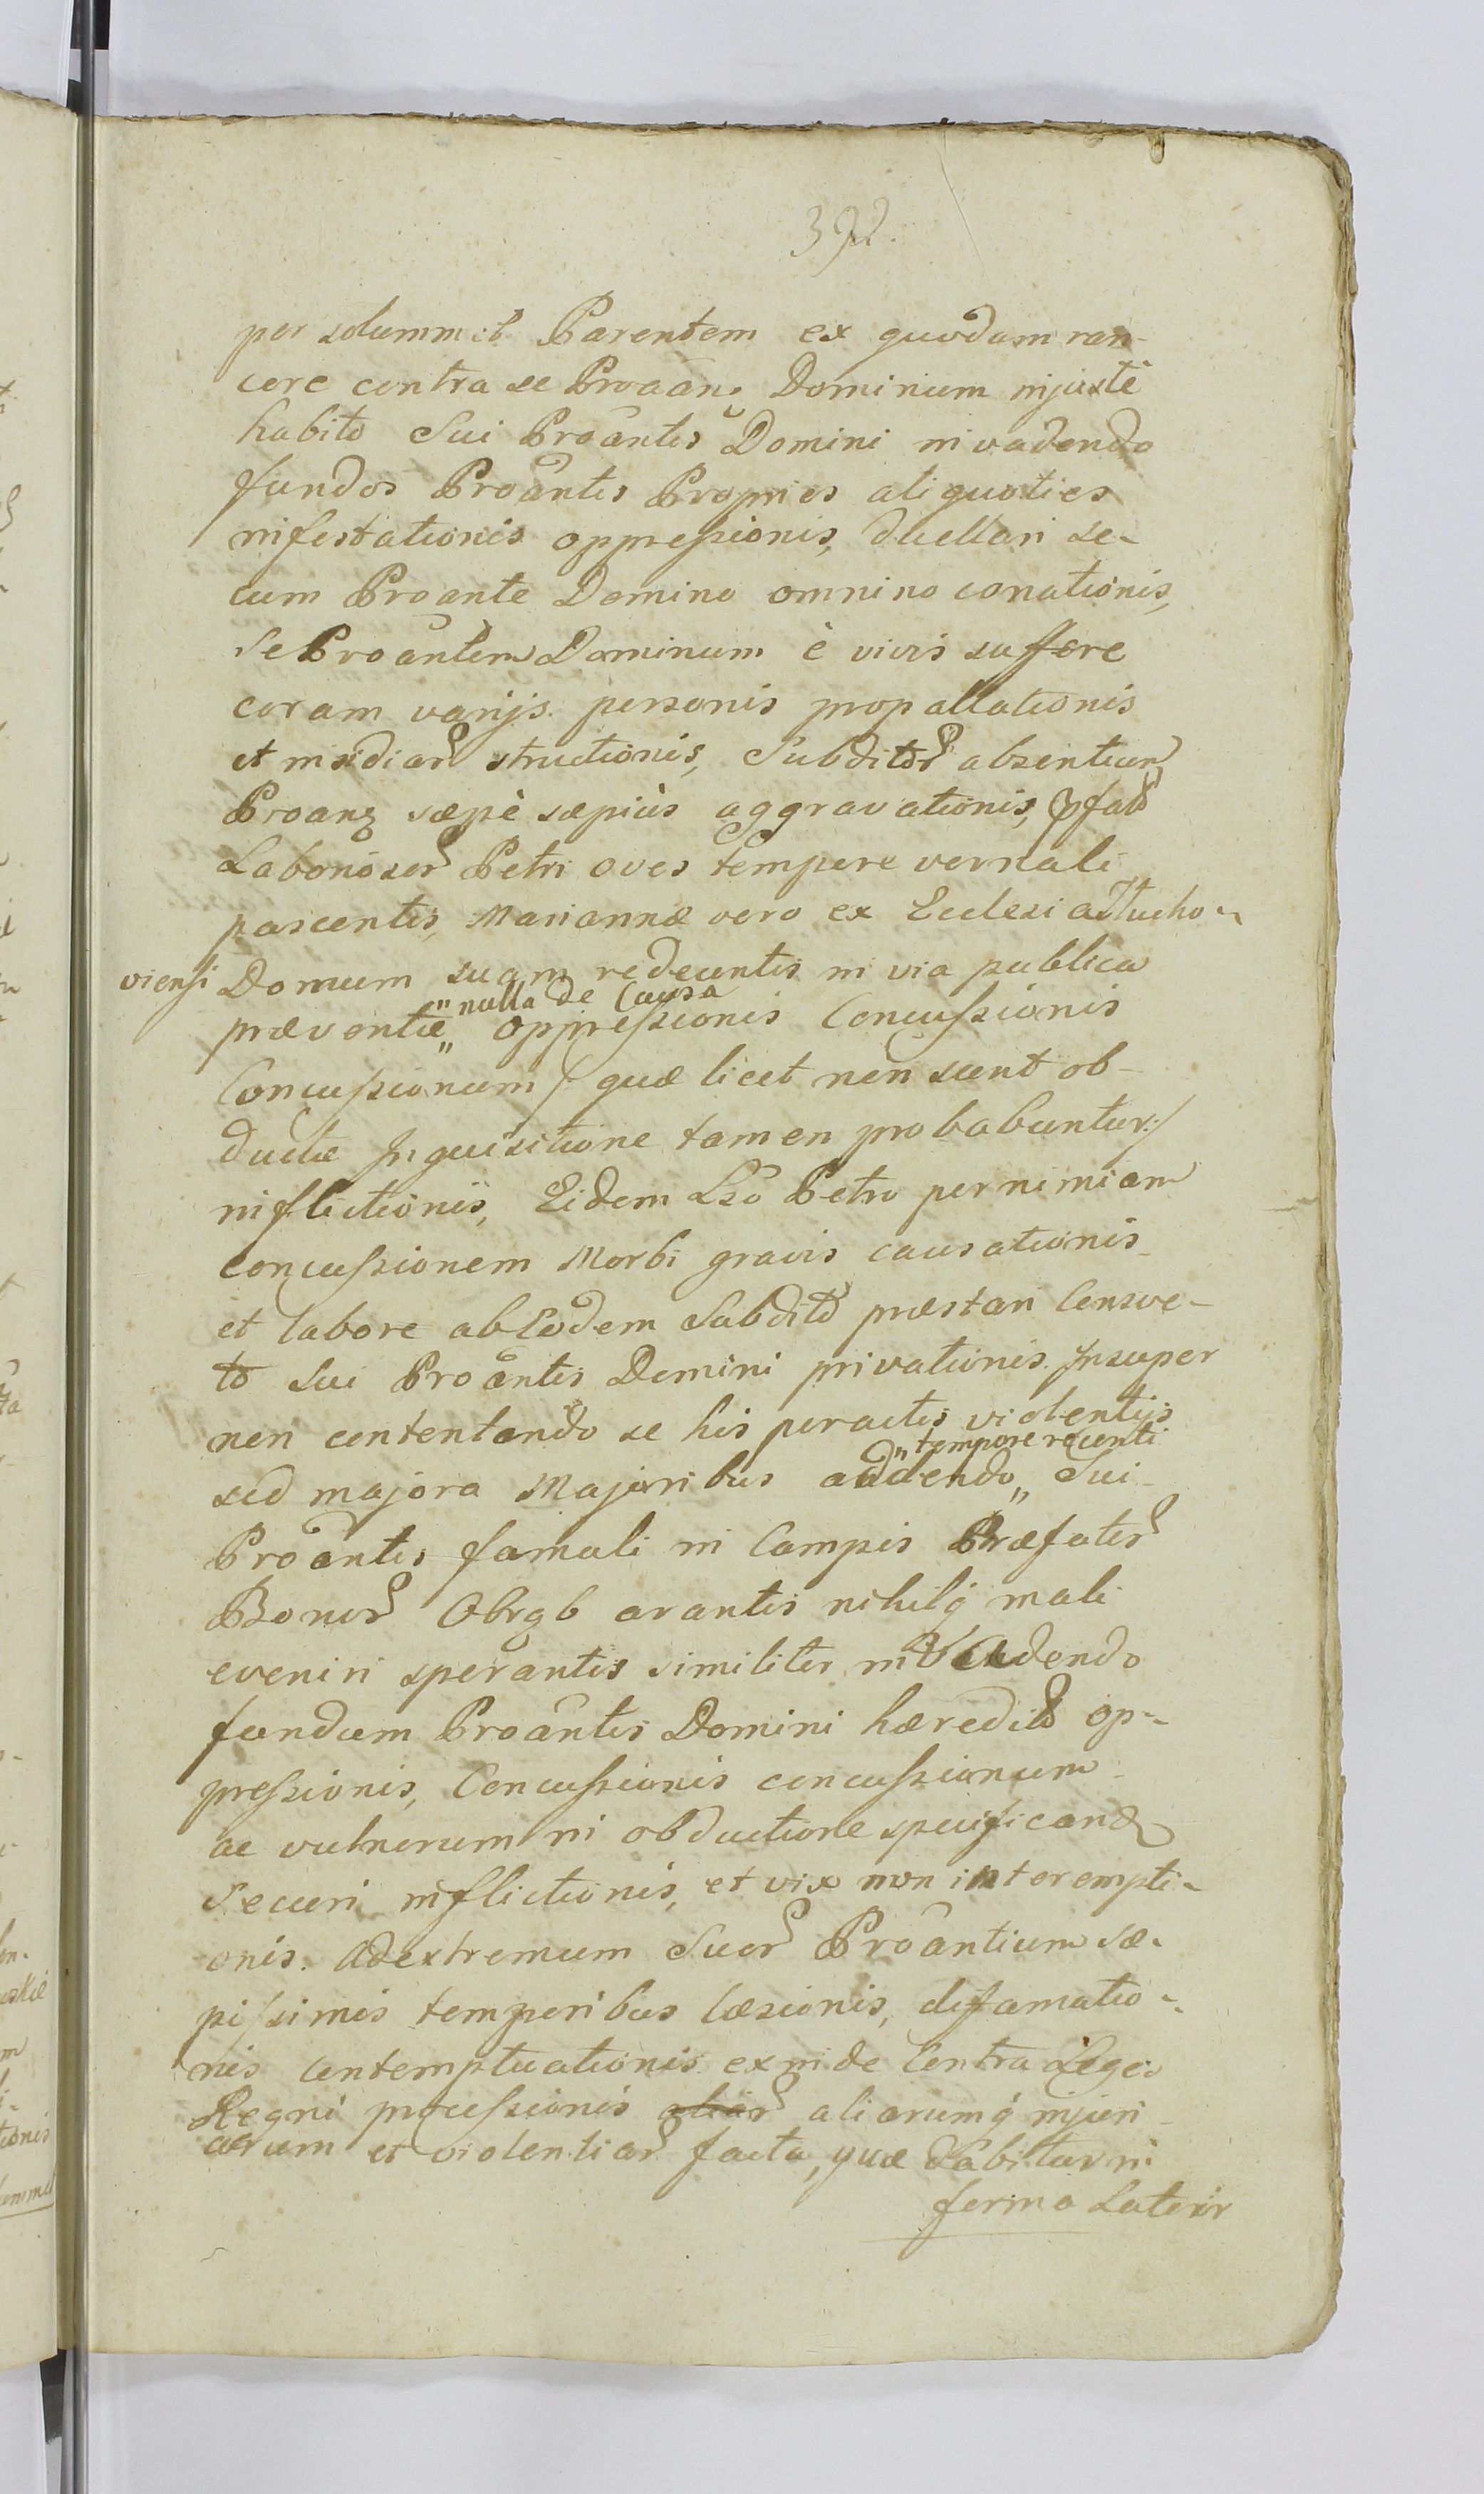 392.
per solummet Parentem ex quodam ran-
core contra se Proãn. Dominium injustè
habito Sui Proãntis Domini invadendo
fundos Proãntis Proprios aliquoties
infestationis oppressionis, duellari se-
cum Proante Domino omnino conationis,
se Proãntem Dominum è vivis sufferre
coram varijs personis propallationis
et insidiar structionis, Subditor absentium
Proanz sæpè sæpiùs aggravationis, pfato
Laboriosor Petri oves tempore vernali
pascentis, Mariannæ vero ex Ecclesia Stucho-
viensi Domum suam redeuntis in via publica
præventæ „nulla de Causa„ oppressionis Concussionis
Concussionum /: quæ licet non sunt ob-
ductæ Inquisitione tamen probabuntur :/
inflictionis, Eidem Lso Petro per nimiam
concussionem Morbi gravis causationis
et labore ab Eodem Subdito præstari Consve-
to Sui Proãntis Domini privationis. Insuper
non contentando se his peractis violentijs
sed majora Majoribus addendo „tempore recenti„ Sui
Proãntis famuli in Campis Præfator
Bonor Obrąb arantis nihilq mali
eveniri sperantis similiter invadendo
fundum Proãntis Domini hæredito op-
pressionis, Concussionis concussionum
ac vulnerum in obductione specificand
Securi inflictionis, et vix non interempti-
onis. Ad extremum Suor Proãntium sæ-
pissimis temporibus læsionis, difamatio-
nis contemptuationis exinde Contra Leges
Regni processionis aliar aliarumq injuri-
arum et violentiar facta, quæ dabitur in
forma Latior